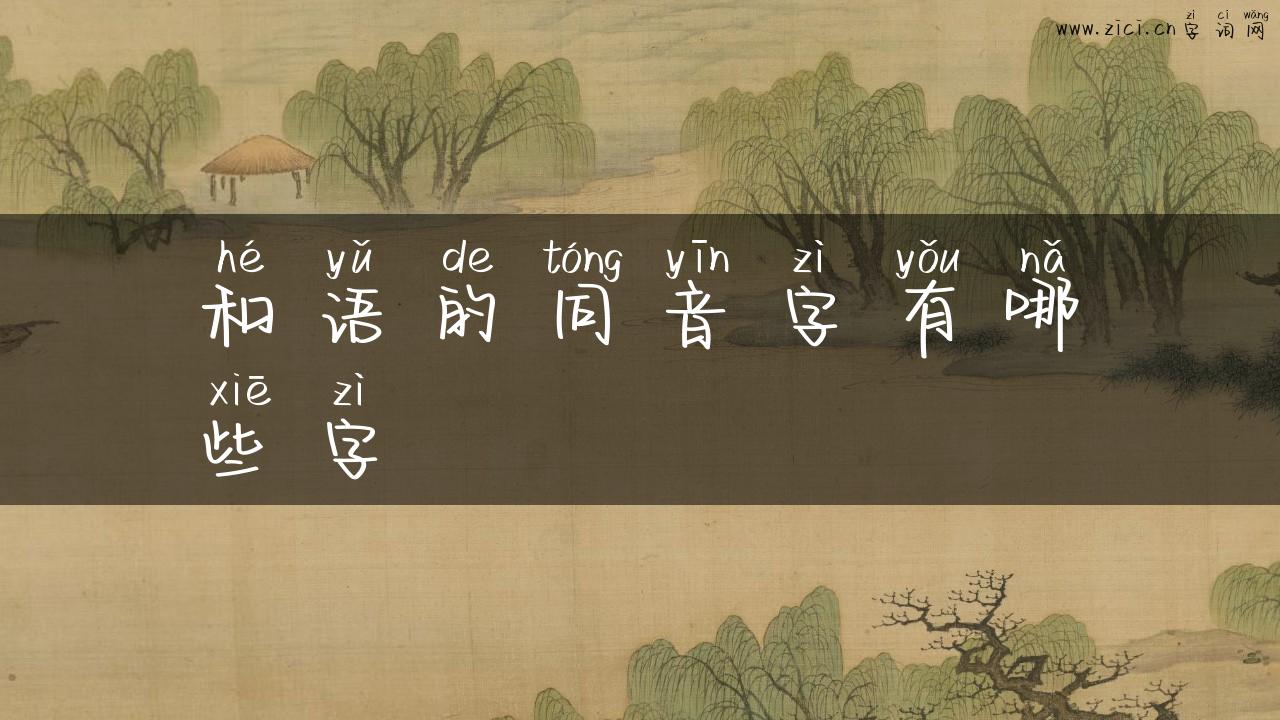 zì cí wǎng
www.zici.cn 字词网
hé yǔ de tóng yīn zì yǒu nǎ
和语的同音字有哪
xiē zì
些字